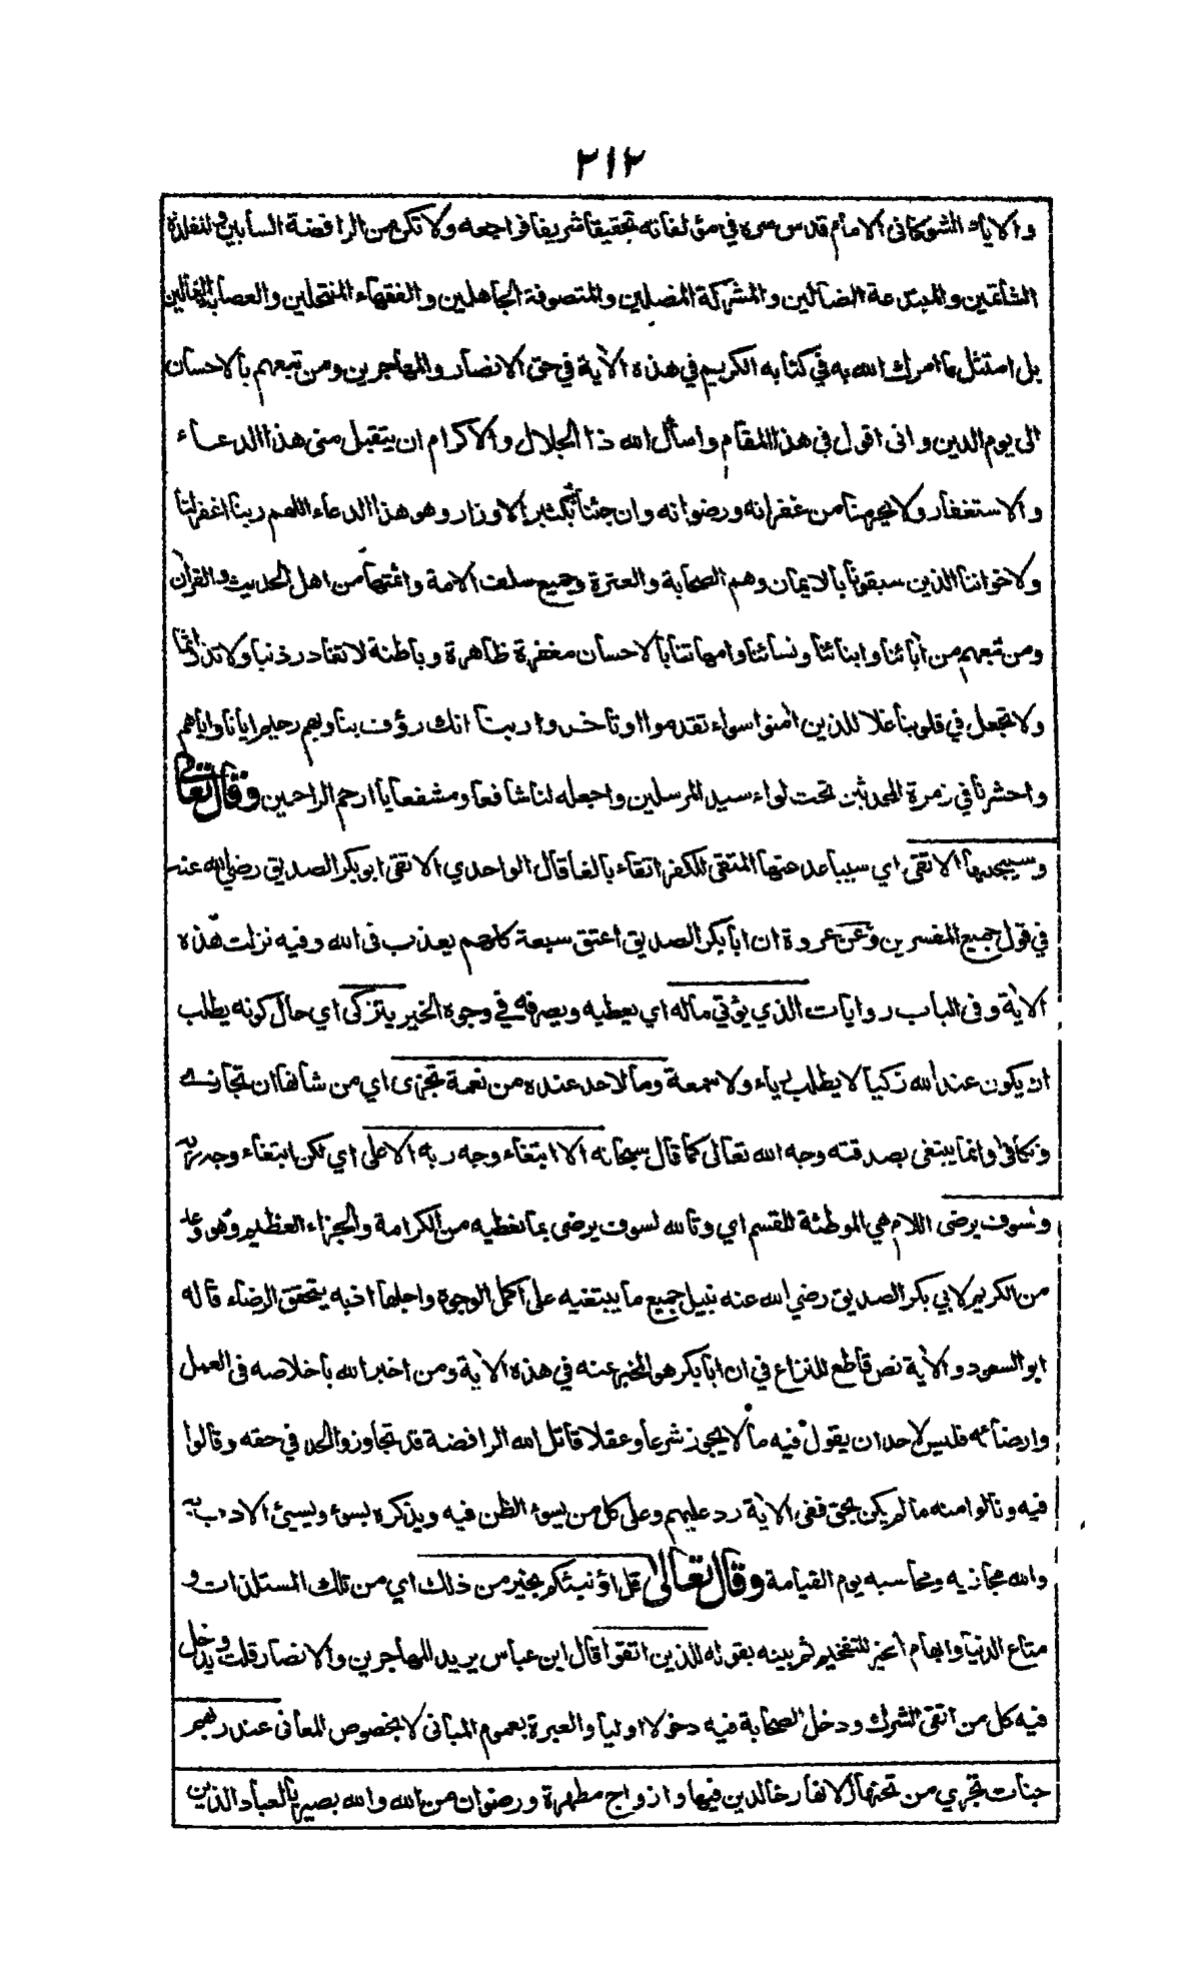 ٢١٢
والآيات الشوكاني الامام قدس سره في مؤلفاته تحقيقا شريفا فراجعه ولا تكن من الرافضة السابين والمقلدة
الشاتمين والمبتدعة الضالين والمشركة المضلين والمتصوفة الجاهلين والفقهاء المنتحلين والعصابة الغالين
بل امتثل ما امرك الله به في كتابه الكريم في هذه الآية في حق الانصار والمهاجرين ومن تبعهم بالاحسان
الى يوم الدين واني اقول في هذا المقام واسأل الله ذا الجلال والاكرام ان يتقبل مني هذا الدعاء
والاستغفار ولا يحرمنا من غفرانه ورضوانه وان جئنا بكثير الاوزار وهو هذا الدعاء اللهم ربنا اغفر لنا
ولاخواننا الذين سبقونا بالايمان وهم الصحابة والعترة وجميع سلف الامة وائمتها من اهل الحديث والقرآن
ومن تبعهم من آبائنا وابنائنا ونسائنا وامهاتنا بالاحسان مغفرة ظاهرة وباطنة لا تغادر ذنبا ولا تذر اثما
ولا تجعل في قلوبنا غلا للذين آمنوا سواء تقدموا او تأخروا ربنا انك رؤف بنا وبهم رحيم ايانا واياهم
واحشرنا في زمرة المحدثين تحت لواء سيد المرسلين واجعله لنا شافعا ومشفعا يا ارحم الراحمين وقال تعالى
وسيجنبها الاتقى اي سيباعد عنها المتقي للكفر اتقاء بالغا قال الواحدي الاتقى ابو بكر الصديق رضي الله عنه
في قول جميع المفسرين وعن عروة ان ابا بكر الصديق اعتق سبعة كلهم يعذب في الله وفيه نزلت هذه
الآية وفي الباب روايات الذي يؤتي ماله اي يعطيه ويصرفه في وجوه الخير يتزكى اي حال كونه يطلب
ان يكون عند الله زكيا لا يطلب رياء ولا سمعة وما لاحد عنده من نعمة تجزى اي من شانها ان تجازى
وتكافى وانما يبتغي بصدقته وجه الله تعالى كما قال سبحانه الا ابتغاء وجه ربه الاعلى اي لكن ابتغاء وجه ربه
ولسوف يرضى اللام هي الموطئة للقسم اي وتالله لسوف يرضى بما نعطيه من الكرامة والجزاء العظيم وهو وعد
من الكريم لابي بكر الصديق رضي الله عنه بنيل جميع ما يبتغيه على اكمل الوجوه واجلها اذ به يتحقق الرضاء قاله
ابو السعود والآية نص قاطع للنزاع في ان ابا بكر هو المخبر عنه في هذه الآية ومن اخبر الله باخلاصه في العمل
وارضائه فليس لاحد ان يقول فيه ما لا يجوز شرعا وعقلا قاتل الله الرافضة قد تجاوزوا الحد في حقه وقالوا
فيه ونالوا منه ما لم يكن بحق ففي الآية رد عليهم وعلى كل من يسوء الظن فيه ويذكره بسوء ويسيئ الادب به
والله مجازيه ومحاسبه يوم القيامة وقال تعالى قل اؤنبئكم بخير من ذلك اي من تلك المستلذات و
متاع الدنيا وابهام الخير للتفخيم ثم بينه بقوله للذين اتقوا قال ابن عباس يريد المهاجرين والانصار قلت ويدخل
فيه كل من اتقى الشرك ودخل الصحابة فيه دخولا اوليا والعبرة بعموم المباني لا بخصوص المعاني عند ربهم
جنات تجري من تحتها الانهار خالدين فيها وازواج مطهرة ورضوان من الله والله بصير بالعباد الذين